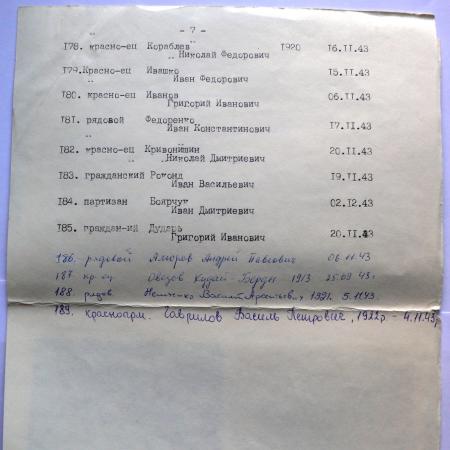 - 7 -
178. красно-ец Кораблев 1920 16.II.43
Николай Федорович
179.Красно-ец Ивашко 15.II.43
Иван Федорович
180. красно-ец Иванов 06.II.43
Григорий Иванович
181. рядовой Федоренко
Иван Константинович 17.II.43
182. красно-ец Кривонишин 20.II.43
Николай Дмитриевич
183. гражданский Ромонд 19.II.43
Иван Васильевич
184. партизан Боярчук 02.12.43
Иван Дмитриевич
185. граждан-ий Дударь 20.II.43
Григорий Иванович
186. рядовой Аморов Андрей Павлович 06.11.43
187. кр-ец Овезов Худай-Берды 1913 25.09.43г.
188. рядов Василий 1921. 5.11.43.
189. красноарм. Гаврилов Василь Петрович, 1922р. - 4.11.43р